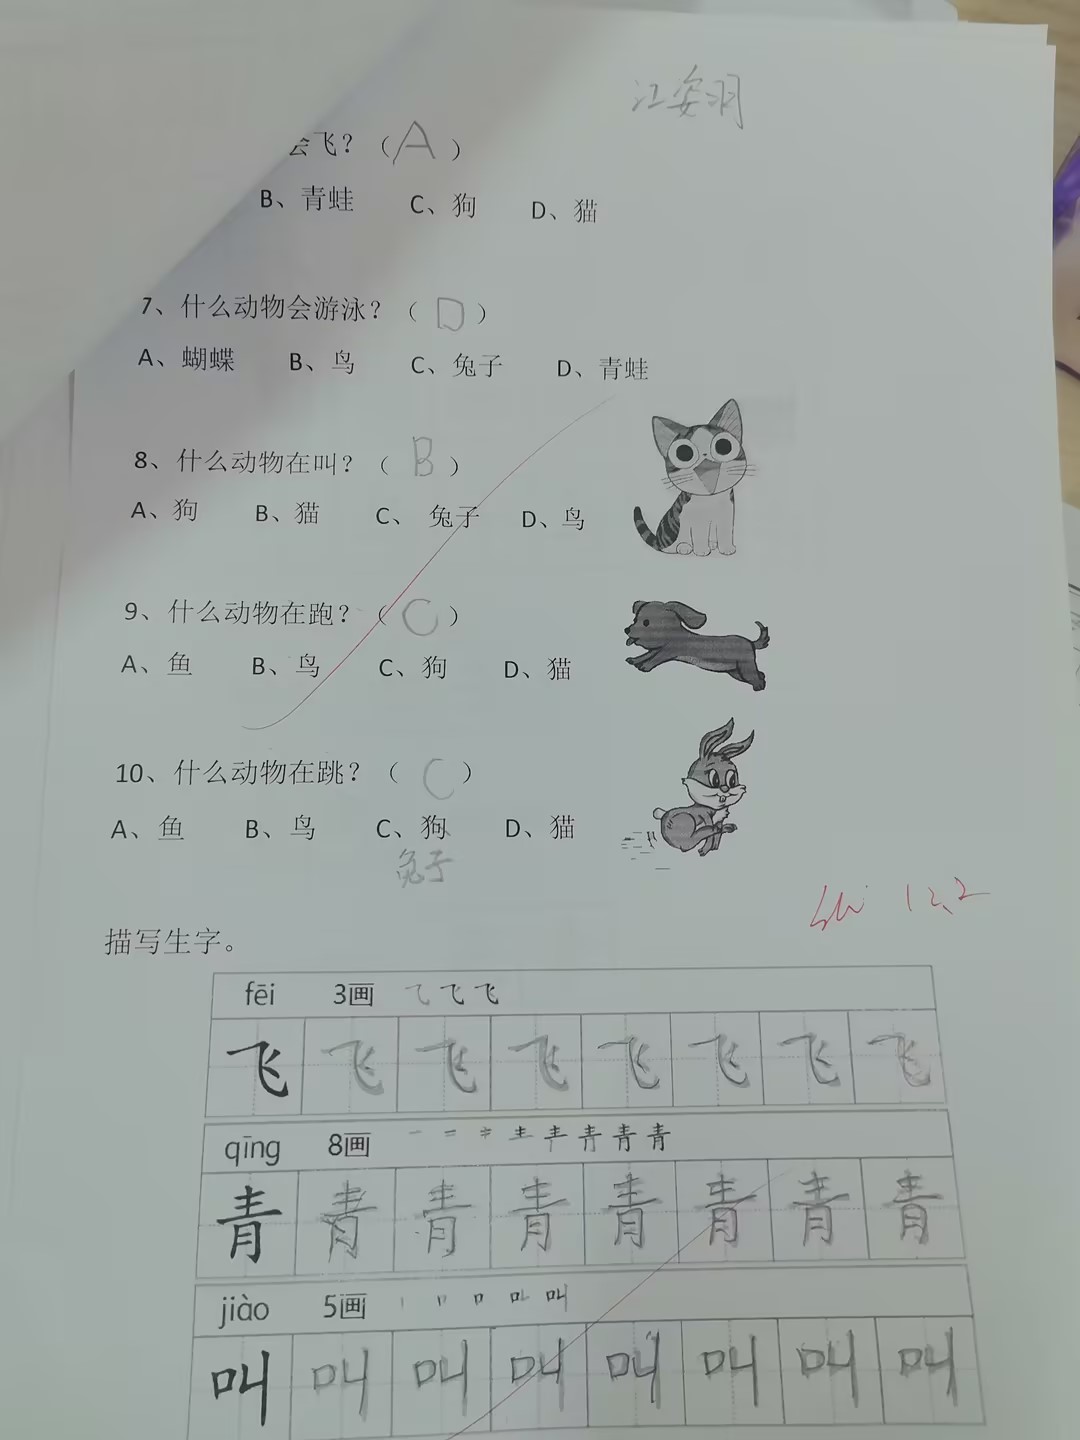 江姿羽
会飞？（A）
B、青蛙 C、狗 D、猫
7、什么动物会游泳？（D）
A、蝴蝶 B、鸟 C、兔子 D、青蛙
8、什么动物在叫？（B）
A、狗 B、猫 C、 兔子 D、鸟
9、什么动物在跑？（C）
A、鱼 B、鸟 C、狗 D、猫
10、什么动物在跳？（C）
A、鱼 B、鸟 C、狗 D、猫
兔子
12.2
描写生字。
fēi 3画
飞 飞 飞 飞 飞 飞 飞 飞
qīng 8画
青 青 青 青 青 青 青 青
jiào 5画
叫 叫 叫 叫 叫 叫 叫 叫